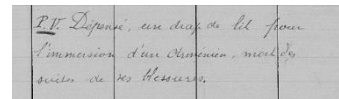 P.V. Dépensé, un drap de lit pour
l'immersion d'un Arménien, mort des
suites de ses blessures.